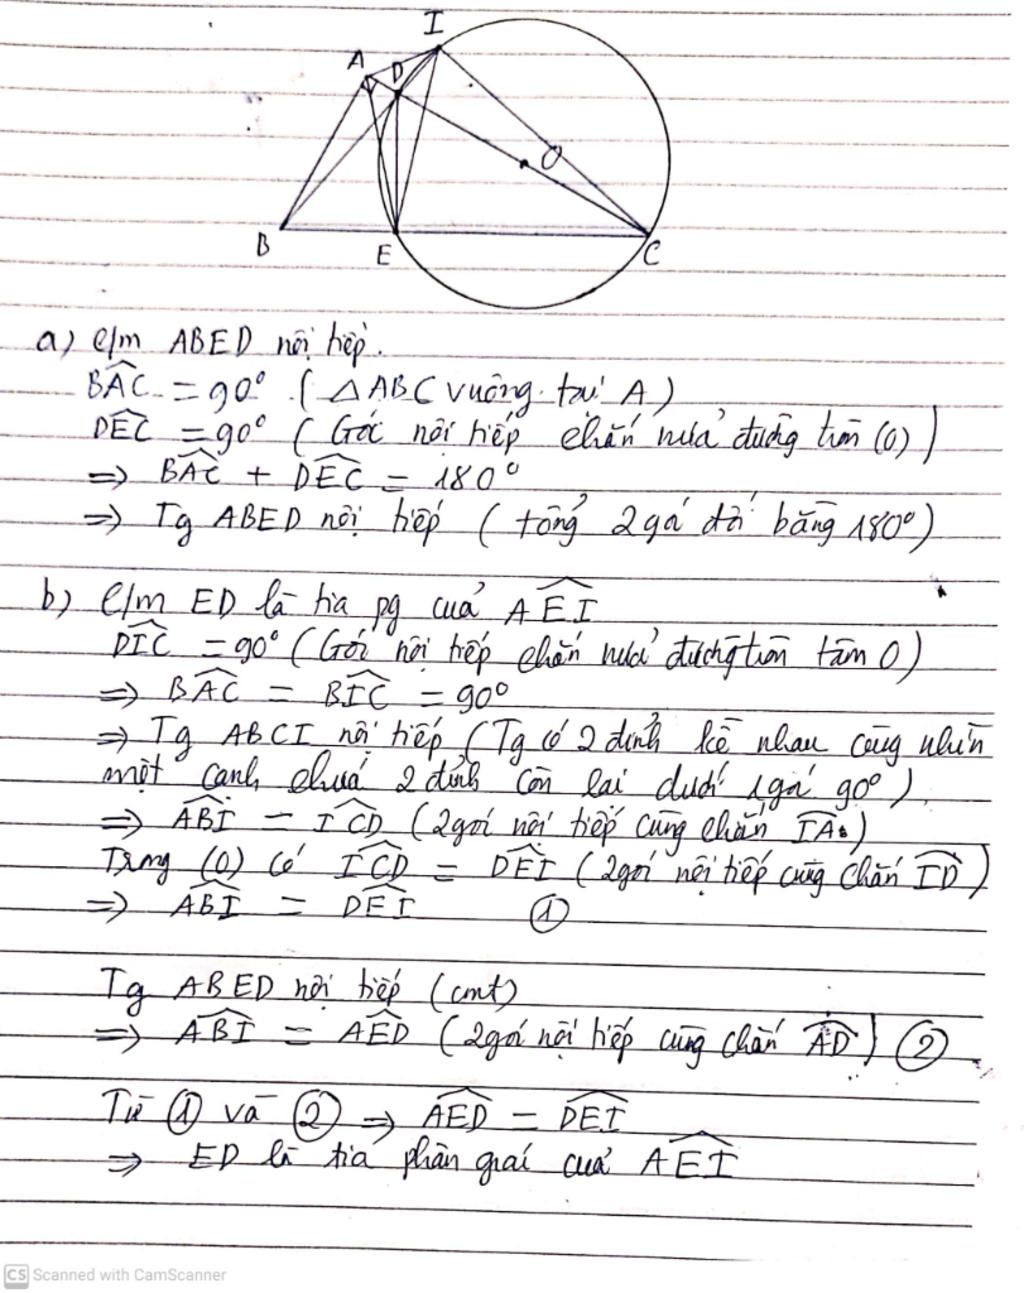 I
A
D
O
B
E
C
a) c/m ABED nội tiếp.
BAC = 90° (△ABC vuông tại A)
DEC = 90° (Góc nội tiếp chắn nửa đường tròn (O))
=> BAC + DEC = 180°
=> Tg ABED nội tiếp (tổng 2 góc đối bằng 180°)
b) c/m ED là tia pg của AEI
DIC = 90° (Góc nội tiếp chắn nửa đường tròn tâm O)
=> BAC = BIC = 90°
=> Tg ABCI nội tiếp (Tg có 2 đỉnh kề nhau cùng nhìn
một cạnh chứa 2 đỉnh còn lại dưới 1 góc 90°)
=> ABI = ICD (2 góc nội tiếp cùng chắn IA)
Trong (O) có ICD = DEI (2 góc nội tiếp cùng chắn ID)
=> ABI = DEI ①
Tg ABED nội tiếp (cmt)
=> ABI = AED (2 góc nội tiếp cùng chắn AD) ②
Từ ① và ② => AED = DEI
=> ED là tia phân giác của AEI
CS Scanned with CamScanner